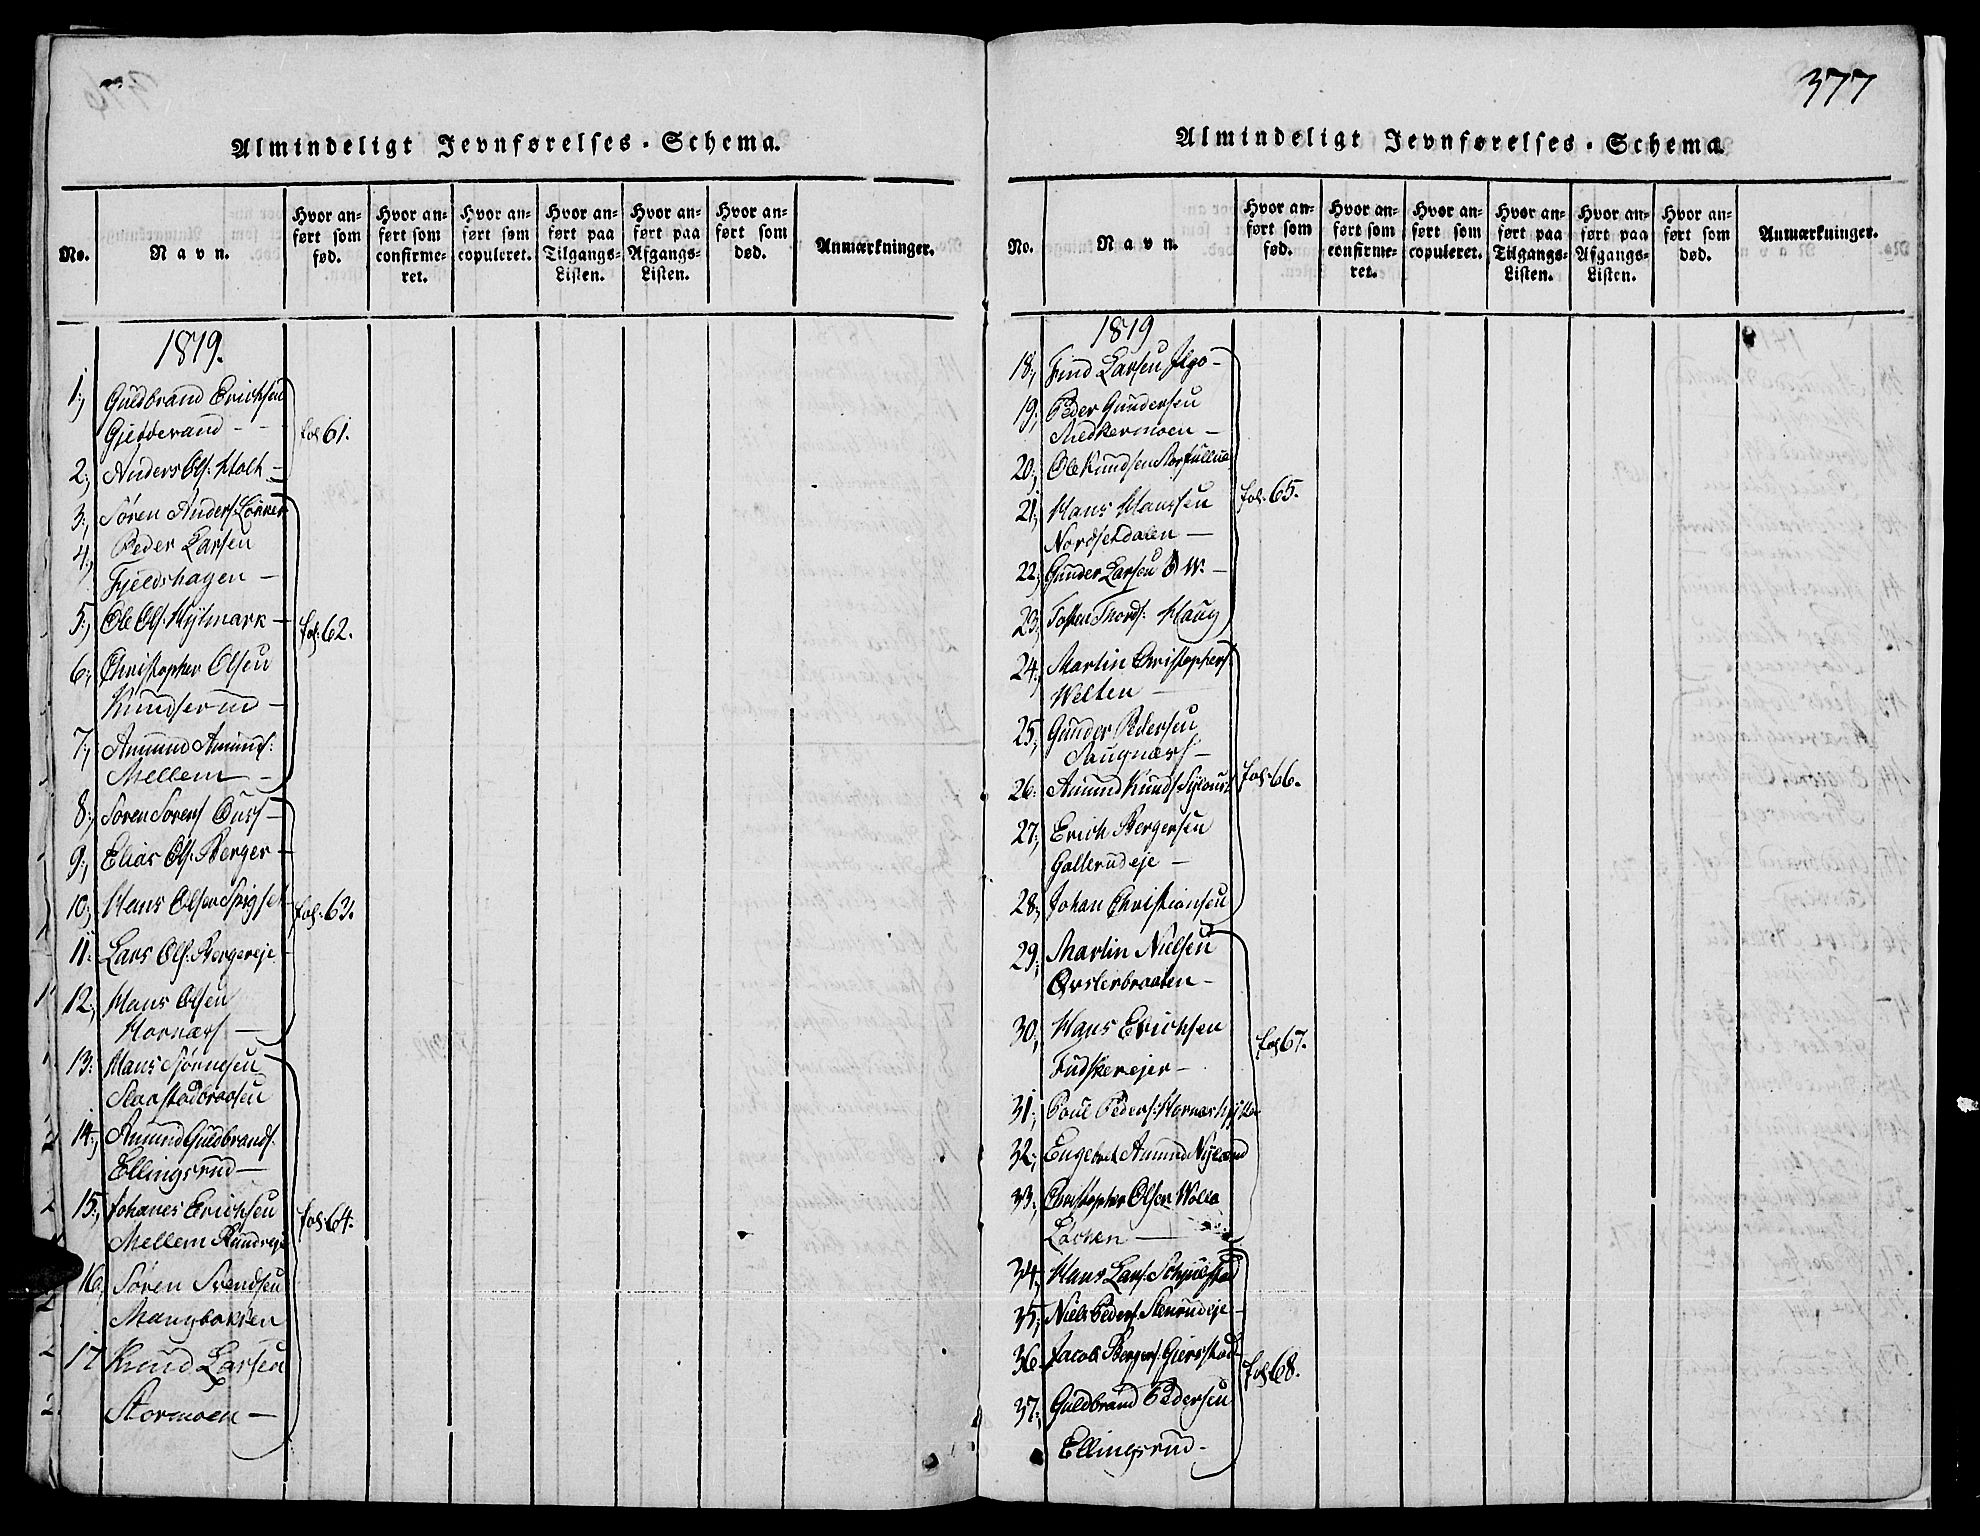 Almindeligt Jevnførelses-Schema.
No.
Navn.
Hvor anført som fød.
Hvor anført som confirmeret.
Hvor anført som copuleret.
Hvor anført paa Tilgangs-Listen.
Hvor anført paa Afgangs-Listen.
Hvor anført som død.
Anmærkninger.
1819.
1., Guldbrand Erichsen
Gjedderand -
fol 61.
2., Anders Ols: Holt -
3., Søren Anders: Løkker
4., Peder Larsen
Fjeldshagen -
5., Ole Ols: Hytmark -
fol: 62.
6., Christopher Olsen
Knudserud -
7., Amund Amunds:
Mellem -
8., Soren Sorens
9., Elias Ols: Berger -
10., Hans Olsen
fol. 63.
11. Lars Ols: Bergereje
12., Hans Olsen
Hornæss -
13. Hans
14., Amund Guldbrands:
Ellingsrud -
15., Johanes Erichsen
Mellem
fol 64.
16. Søren Svendsen
Haugbakken
17 Knud Larsen
Stormoen -
377
Almindeligt Jevnførelses-Schema.
No.
Navn.
Hvor anført som fød.
Hvor anført som confirmeret.
Hvor anført som copuleret.
Hvor anført paa Tilgangs-Listen.
Hvor anført paa Afgangs-Listen.
Hvor anført som død.
Anmærkninger.
1819
18., Find Larsen
19., Peder Gundersen
Medkermoen -
20., Ole Knudsen
21., Hans Hanssen
fol. 65.
Nordsetdalen -
22., Gunder Larsen
23., Thords: Haug
24., Martin Christophers:
Welten -
25., Gunder Pedersen
Haugnæss -
26. Amund Knuds
fol. 66.
27., Erich Bergersen
Gallerudeje -
28., Johan Christiansen
29., Martin Nielsen
Qvisterbraaten -
30., Hans Erichsen
fol 67.
Fudskerejer -
31., Poul Peders:
32., Engebret Amund Nylænd
33., Christopher Olsen Wolla
Løkken -
34., Hans Lars:
35., Niels Peders: Stenrudeje -
36. Jacob Bergers: Gierstad -
fol 68.
37., Guldbrand Pedersen
Ellingsrud -